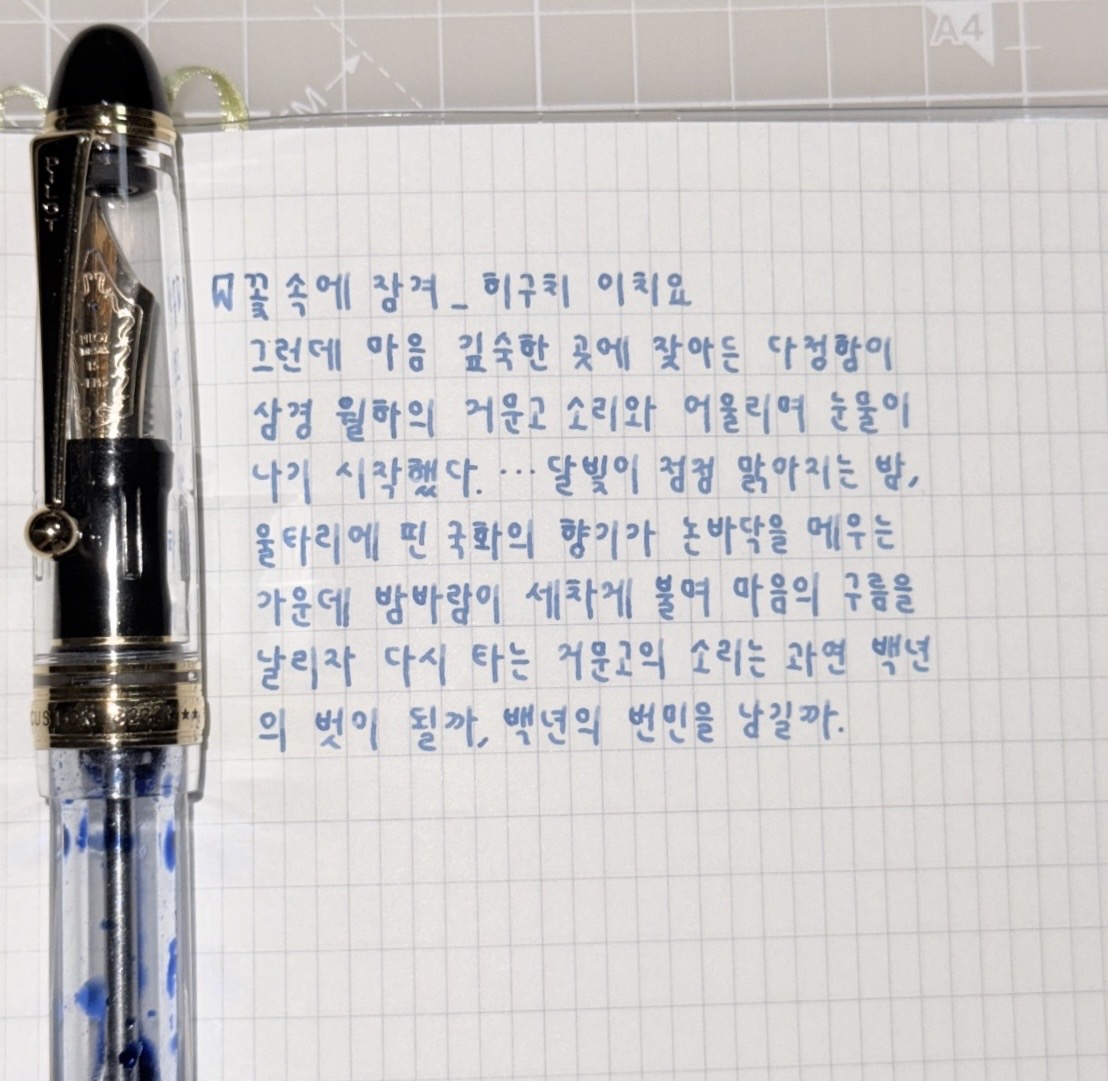 A4
PILOT
꽃 속에 잠겨_히구치 이치요
그런데 마음 깊숙한 곳에 잦아든 다정함이
삼경 월하의 거문고 소리와 어울리며 눈물이
나기 시작했다. … 달빛이 점점 맑아지는 밤,
울타리에 핀 국화의 향기가 논바닥을 메우는
가운데 밤바람이 세차게 불며 마음의 구름을
날리자 다시 타는 거문고의 소리는 과연 백년
의 벗이 될까, 백년의 번민을 남길까.